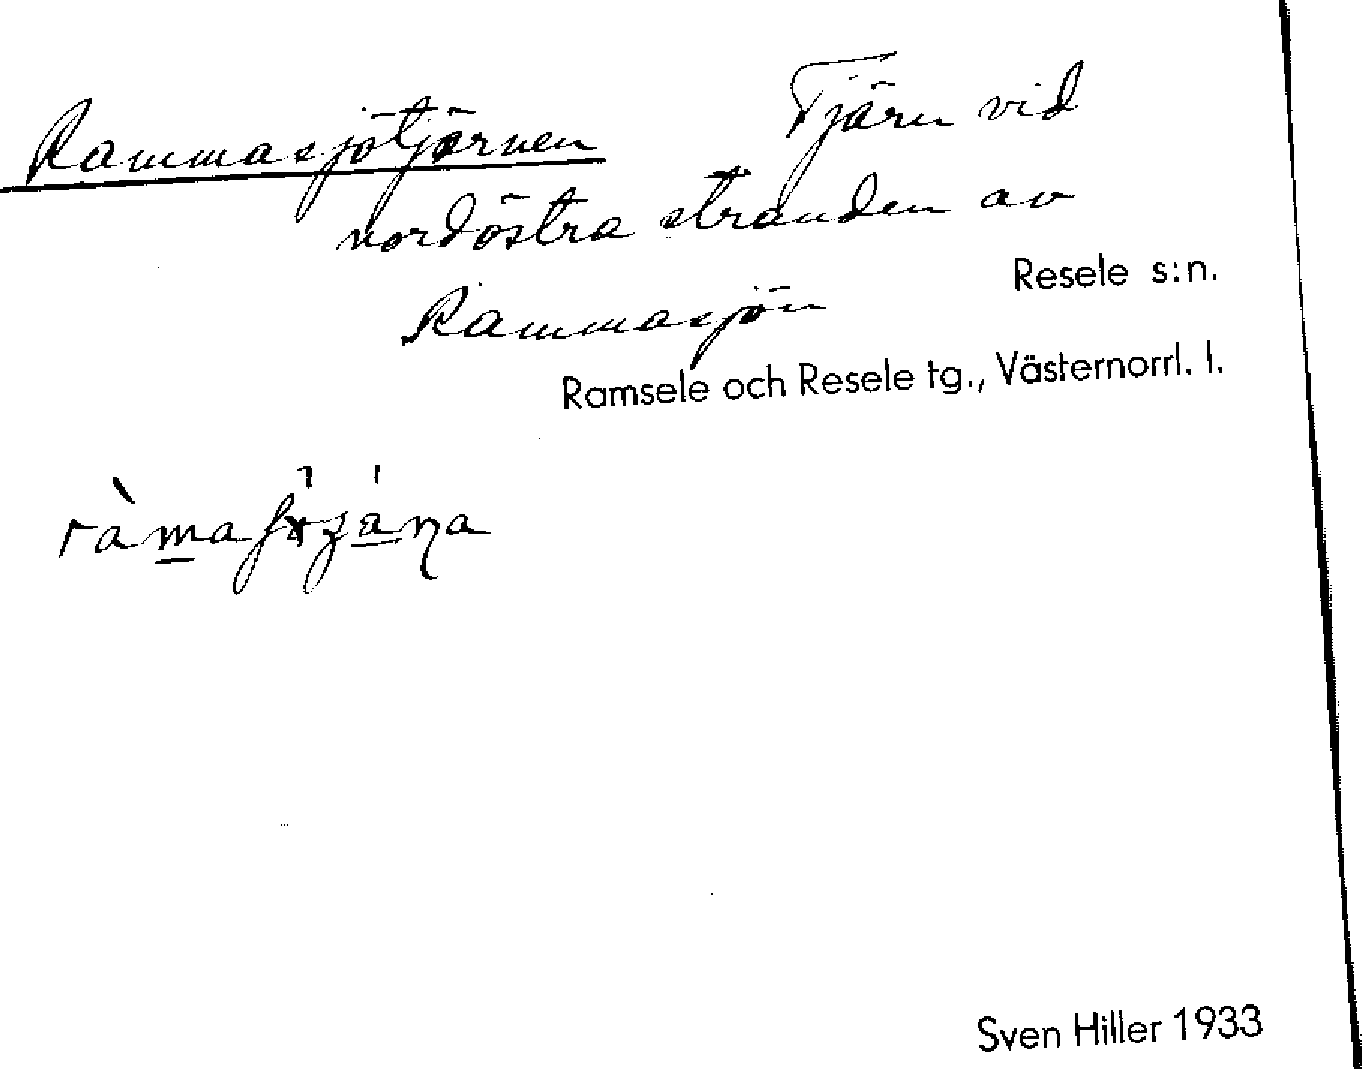 Rammasjötjärnen Tjärn vid
nordöstra stranden av
Resele s:n.
Rammasjön
Ramsele och Resele tg., Västernorrl. l.
Sven Hiller 1933